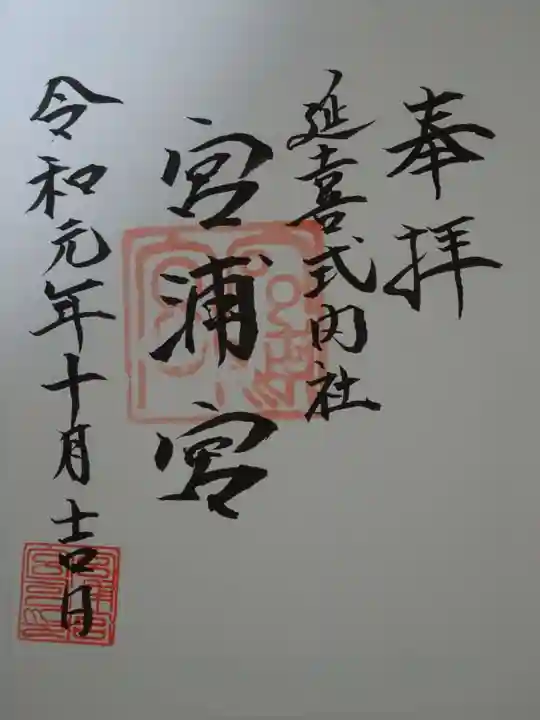 奉拝
延喜式内社
宮浦宮
令和元年十月吉日